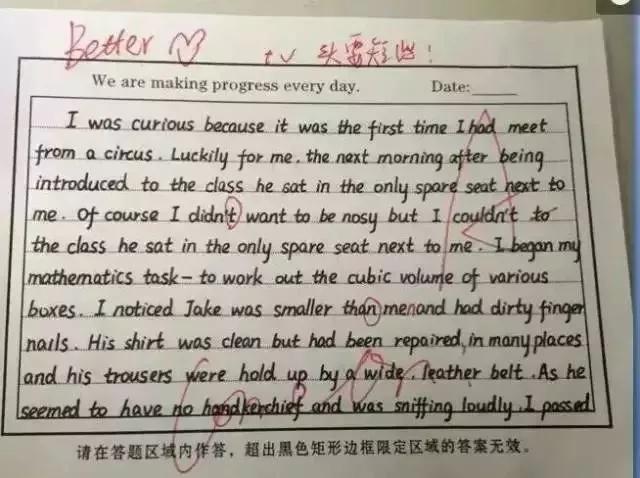 Better tv 头要短些!
We are making progress every day. Date:
I was curious because it was the first time I had meet
from a circus. Luckily for me. the next morning after being
introduced to the class he sat in the only spare seat next to
me. Of course I didn't want to be nosy but I couldn't to
the class he sat in the only spare seat next to me. I began my
mathematics task - to work out the cubic volume of various
boxes. I noticed Jake was smaller than menand had dirty finger
nails. His shirt was clean but had been repaired, in many places
and his trousers were hold up by a wide, leather belt. As he
seemed to have no handkerchief and was sniffing loudly. I passed
请在答题区域内作答，超出黑色矩形边框限定区域的答案无效。